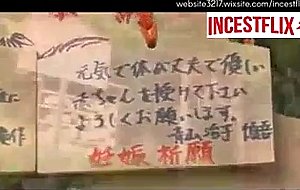 website3217.wixsite.com/incestflix
INCESTFLIX
元気で体が丈夫で優しい
赤ちゃんを授けて下さい
よろしくお願いします。
妊娠祈願